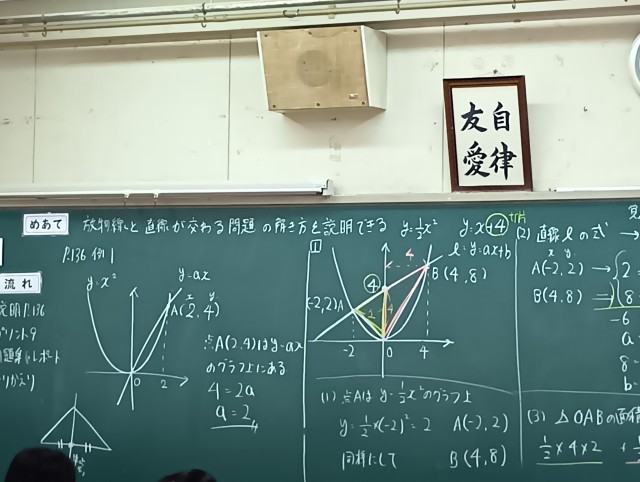 自律
友愛
めあて
放物線と直線が交わる問題の解き方を説明できる
流れ
P.136 例1
y=x²
y=ax
x y
A(2,4)
0 2
点A(2,4)はy=ax
のグラフ上にある
4=2a
a=2
1
y=½x²
y=x+4
l:y=ax+b
4
④
(-2,2)A
B(4,8)
-2 0 4
(1) 点Aはy=½x²のグラフ上
y=½×(-2)²=2 A(-2,2)
同様にして B(4,8)
(2) 直線lの式 →
x y
A(-2,2) → 2
B(4,8) → 8
-6
a=
8
b=
(3) △OABの面積
½×4×2 +